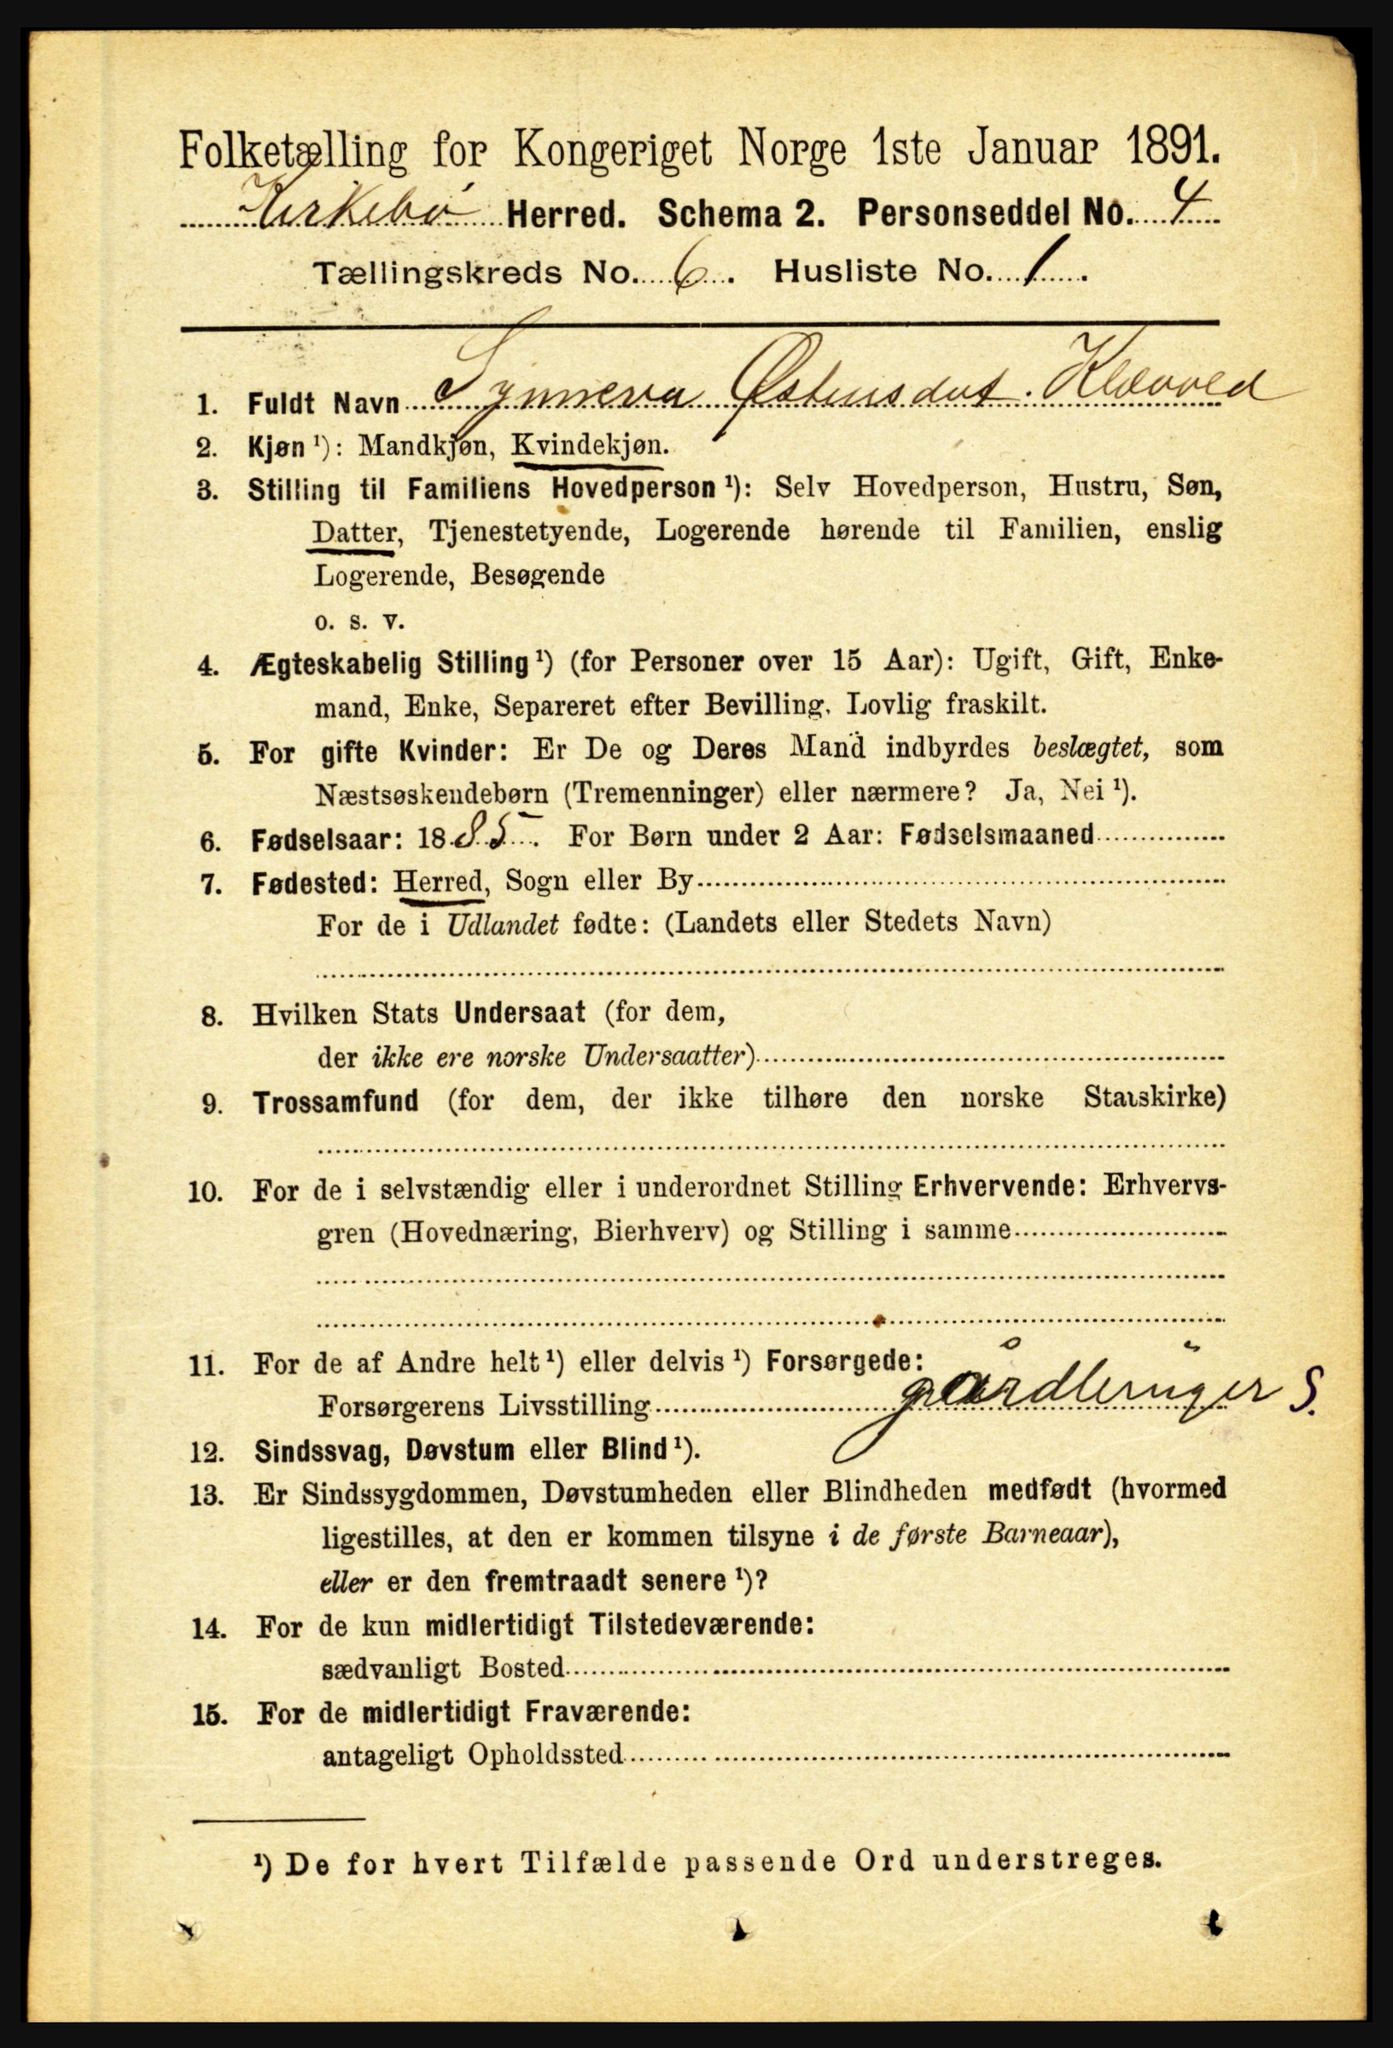 Folketælling for Kongeriget Norge 1ste Januar 1891.
Kirkebø Herred. Schema 2. Personseddel No. 4
Tællingskreds No. 6. Husliste No. 1.
1. Fuldt Navn Synneva Østensdat. Klævold
2. Kjøn ¹): Mandkjøn, Kvindekjøn.
3. Stilling til Familiens Hovedperson ¹): Selv Hovedperson, Hustru, Søn,
Datter, Tjenestetyende, Logerende hørende til Familien, enslig
Logerende, Besøgende
o. s. v.
4. Ægteskabelig Stilling ¹) (for Personer over 15 Aar): Ugift, Gift, Enke-
mand, Enke, Separeret efter Bevilling. Lovlig fraskilt.
5. For gifte Kvinder: Er De og Deres Mand indbyrdes beslægtet, som
Næstsøskendebørn (Tremenninger) eller nærmere? Ja, Nei ¹).
6. Fødselsaar: 1885. For Børn under 2 Aar: Fødselsmaaned
7. Fødested: Herred, Sogn eller By
For de i Udlandet fødte: (Landets eller Stedets Navn)
8. Hvilken Stats Undersaat (for dem,
der ikke ere norske Undersaatter)
9. Trossamfund (for dem, der ikke tilhøre den norske Statskirke)
10. For de i selvstændig eller i underordnet Stilling Erhvervende: Erhvervs-
gren (Hovednæring, Bierhverv) og Stilling i samme
11. For de af Andre helt ¹) eller delvis ¹) Forsørgede:
Forsørgerens Livsstilling gårdbruger S.
12. Sindssvag, Døvstum eller Blind ¹).
13. Er Sindssygdommen, Døvstumheden eller Blindheden medfødt (hvormed
ligestilles, at den er kommen tilsyne i de første Barneaar),
eller er den fremtraadt senere ¹)?
14. For de kun midlertidigt Tilstedeværende:
sædvanligt Bosted
15. For de midlertidigt Fraværende:
antageligt Opholdssted
¹) De for hvert Tilfælde passende Ord understreges.